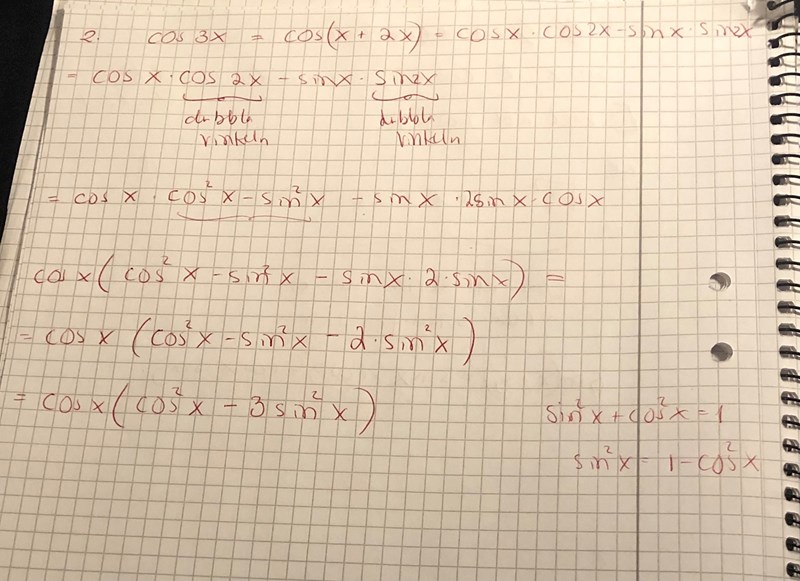 2. cos 3x = cos(x + 2x) = cosx · cos2x - sinx · sin2x
= cos x · cos 2x - sinx · sin2x
dubbla dubbla
vinkeln vinkeln
= cos x · cos²x - sin²x - sinx · 2sinx · cosx
cosx(cos²x - sin²x - sinx · 2 · sinx) =
= cosx (cos²x - sin²x - 2 · sin²x)
= cosx(cos²x - 3sin²x)
sin²x + cos²x = 1
sin²x = 1 - cos²x